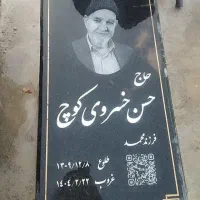 حاج
حسن خسروی کوچ
فرزند محمد
طلوع ۱۳۰۹/۱۲/۸
غروب ۱۴۰۴/۲/۲۲